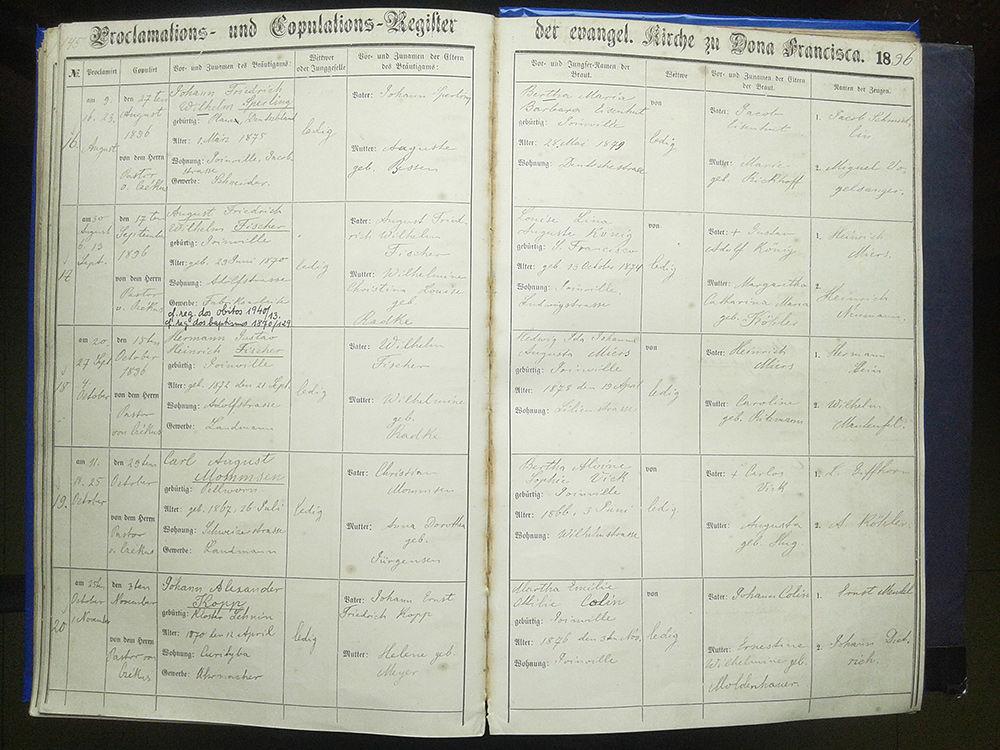 145
Proclamations- und Copulations-Register
der evangel. Kirche zu Dona Francisca. 1896
№
Proclamirt
Copulirt
Vor- und Zunamen des Bräutigams:
Wittwer oder Junggeselle
Vor- und Zunamen der Eltern des Bräutigams:
Vor- und Jungfer-Namen der Braut.
Wittwe
Vor- und Zunamen der Eltern der Braut.
Namen der Zeugen.
16
am 9.
16. 23.
August
den 27ten
August
1896
von dem Herrn
Pastor
Johann Friedrich
Wilhelm Sperling
gebürtig: Deutschland
Alter: 1. März 1875
Wohnung: Joinville, Jacob
strasse
Gewerbe:
ledig
Vater: Johann Sperling
Mutter: Auguste
geb. Bessen
Bertha Maria
Barbara Eisenhut
gebürtig: Joinville
Alter: 28. Mai 1879
Wohnung: Deutschestrasse
von
ledig
Vater: Jacob
Eisenhut
Mutter: Marie
geb. Rickhoff
1. Jacob
2. Miguel Vo-
gelsanger.
17
am 30
August
6. 13
Sept.
den 17ten
September
1896
von dem Herrn
Pastor
August Friedrich
Wilhelm Fischer
gebürtig: Joinville
Alter: geb. 29 Juni 1870
Wohnung: Adolfstrasse
Gewerbe:
cf. reg. dos obitos 1940/13.
cf. reg. dos baptismos 1870/129
ledig
Vater: August Fried-
rich Wilhelm
Fischer
Mutter: Wilhelmine
Christina Louise
geb.
Radke
Louise Lina
Auguste König
gebürtig: S. Francisco
Alter: geb. 13 October 1874
Wohnung: Joinville,
Ludwigstrasse
von
ledig
Vater: + Gustav
Adolf König
Mutter: Margaretha
Catharina Maria
geb. Köhler
1. Heinrich
Miers.
2.
Heinrich
Neumann.
18
am 20.
27 Sept.
4
October
den 15ten
October
1896
von dem Herrn
Pastor
Hermann Gustav
Heinrich Fischer
gebürtig: Joinville
Alter: geb. 1872 den 21 Sept.
Wohnung: Adolfstrasse
Gewerbe: Landmann
ledig
Vater: Wilhelm
Fischer
Mutter: Wilhelmine
geb.
Radke
Hedwig Ida Johanna
Augusta Miers
gebürtig: Joinville
Alter: 1875 den 19 April
Wohnung: Lilienstrasse
von
ledig
Vater: Heinrich
Miers
Mutter: Caroline
geb.
1. Hermann
2. Wilhelm
19
am 11.
18. 25
October
den 29ten
October
von dem Herrn
Pastor
Carl August
Mommsen
gebürtig: Pellworm
Alter: geb. 1867, 26 Juli
Wohnung: Schweizerstrasse
Gewerbe: Landmann
ledig
Vater: Christian
Mommsen
Mutter: Anna Dorothea
geb.
Jürgensen
Bertha Alvine
Sophie Vick
gebürtig: Joinville
Alter: 1866, 3 Juni
Wohnung: Wilhelmstrasse
von
ledig
Vater: + Carlos
Vick
Mutter: Augusta
geb. Hug.
1.
2. A. Köhler.
20
am 25ten
October
1 November
den 3ten
November
von dem Herrn
Pastor von
Johann Alexander
Kopp
gebürtig: Kloster Lehnin
Alter: 1870 den 12 April
Wohnung: Curityba
Gewerbe: Uhrmacher
ledig
Vater: Johann Ernst
Friedrich Kopp
Mutter: Helene geb.
Meyer
Martha Emilie
Ottilie Colin
gebürtig: Joinville
Alter: 1876 den 3ten Nov.
Wohnung: Joinville
von
ledig
Vater: Johann Colin
Mutter: Ernestine
Wilhelmine geb.
Moldenhauer
1. Ernst
2. Johann Diet-
rich.